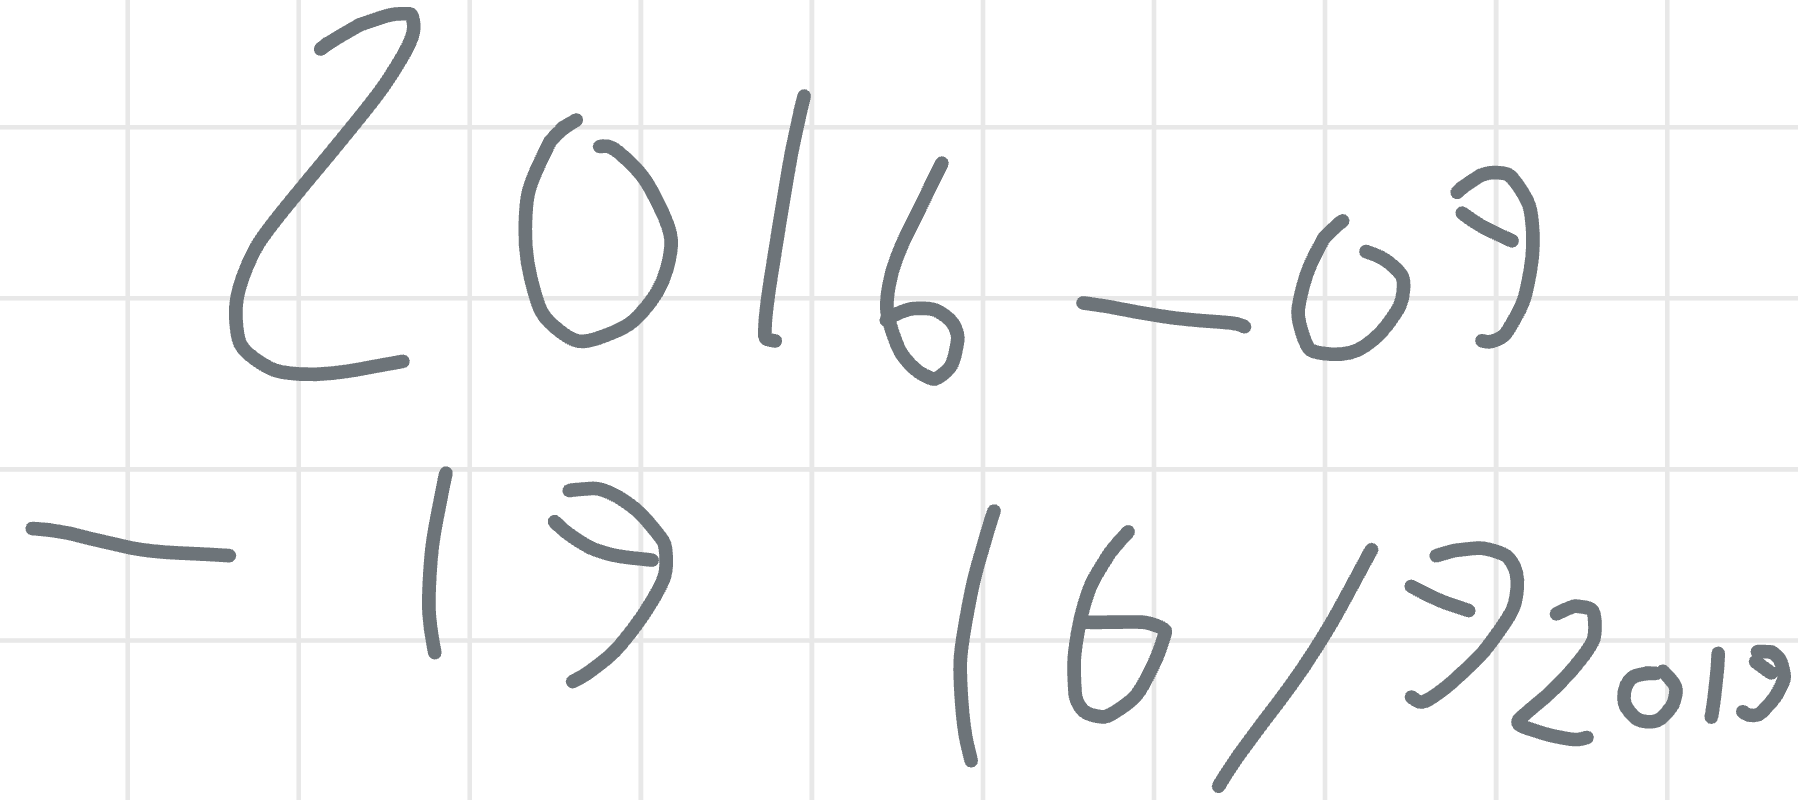 2016-09
-19 16/9 2019